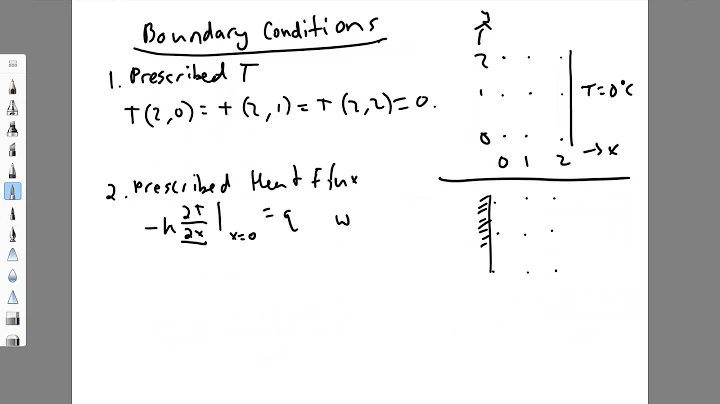 Boundary Conditions
1. Prescribed T
T(2,0) = T(2,1) = T(2,2) = 0.
2. Prescribed Heat Flux
-k ∂T/∂x |x=0 = q w
y
2
1
0
0 1 2 → x
T=0°C